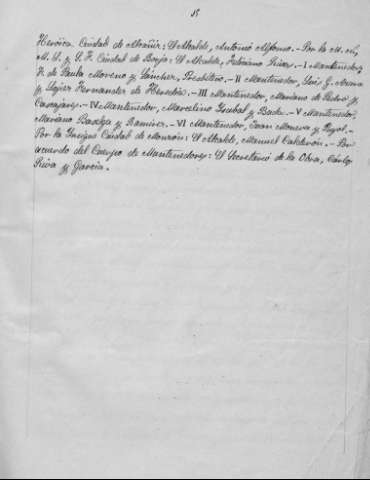 Heróica Ciudad de Alcañiz: El Alcalde, Antonio Alfonso. - Por la M. N.,
M. L. y F. F. Ciudad de Borja: El Alcalde, Feliciano - I Mantenedor,
F. de Paula Moreno y Sánchez, Presbítero. - II Mantenedor, Luis G.
y Ugier Hernandez de Heredia. - III Mantenedor, Mariano de Pedro y
Cascajares. - IV Mantenedor, Marcelino Isabal y Bada. - V Mantenedor,
Mariano Baselga y Ramírez. - VI Mantenedor, Juan Moneva y Puyol. -
Por la Insigne Ciudad de Monzón: El Alcalde, Manuel Calderón. - Por
acuerdo del Cuerpo de Mantenedores: El Secretario de la Obra, Carlos
Riva y García.